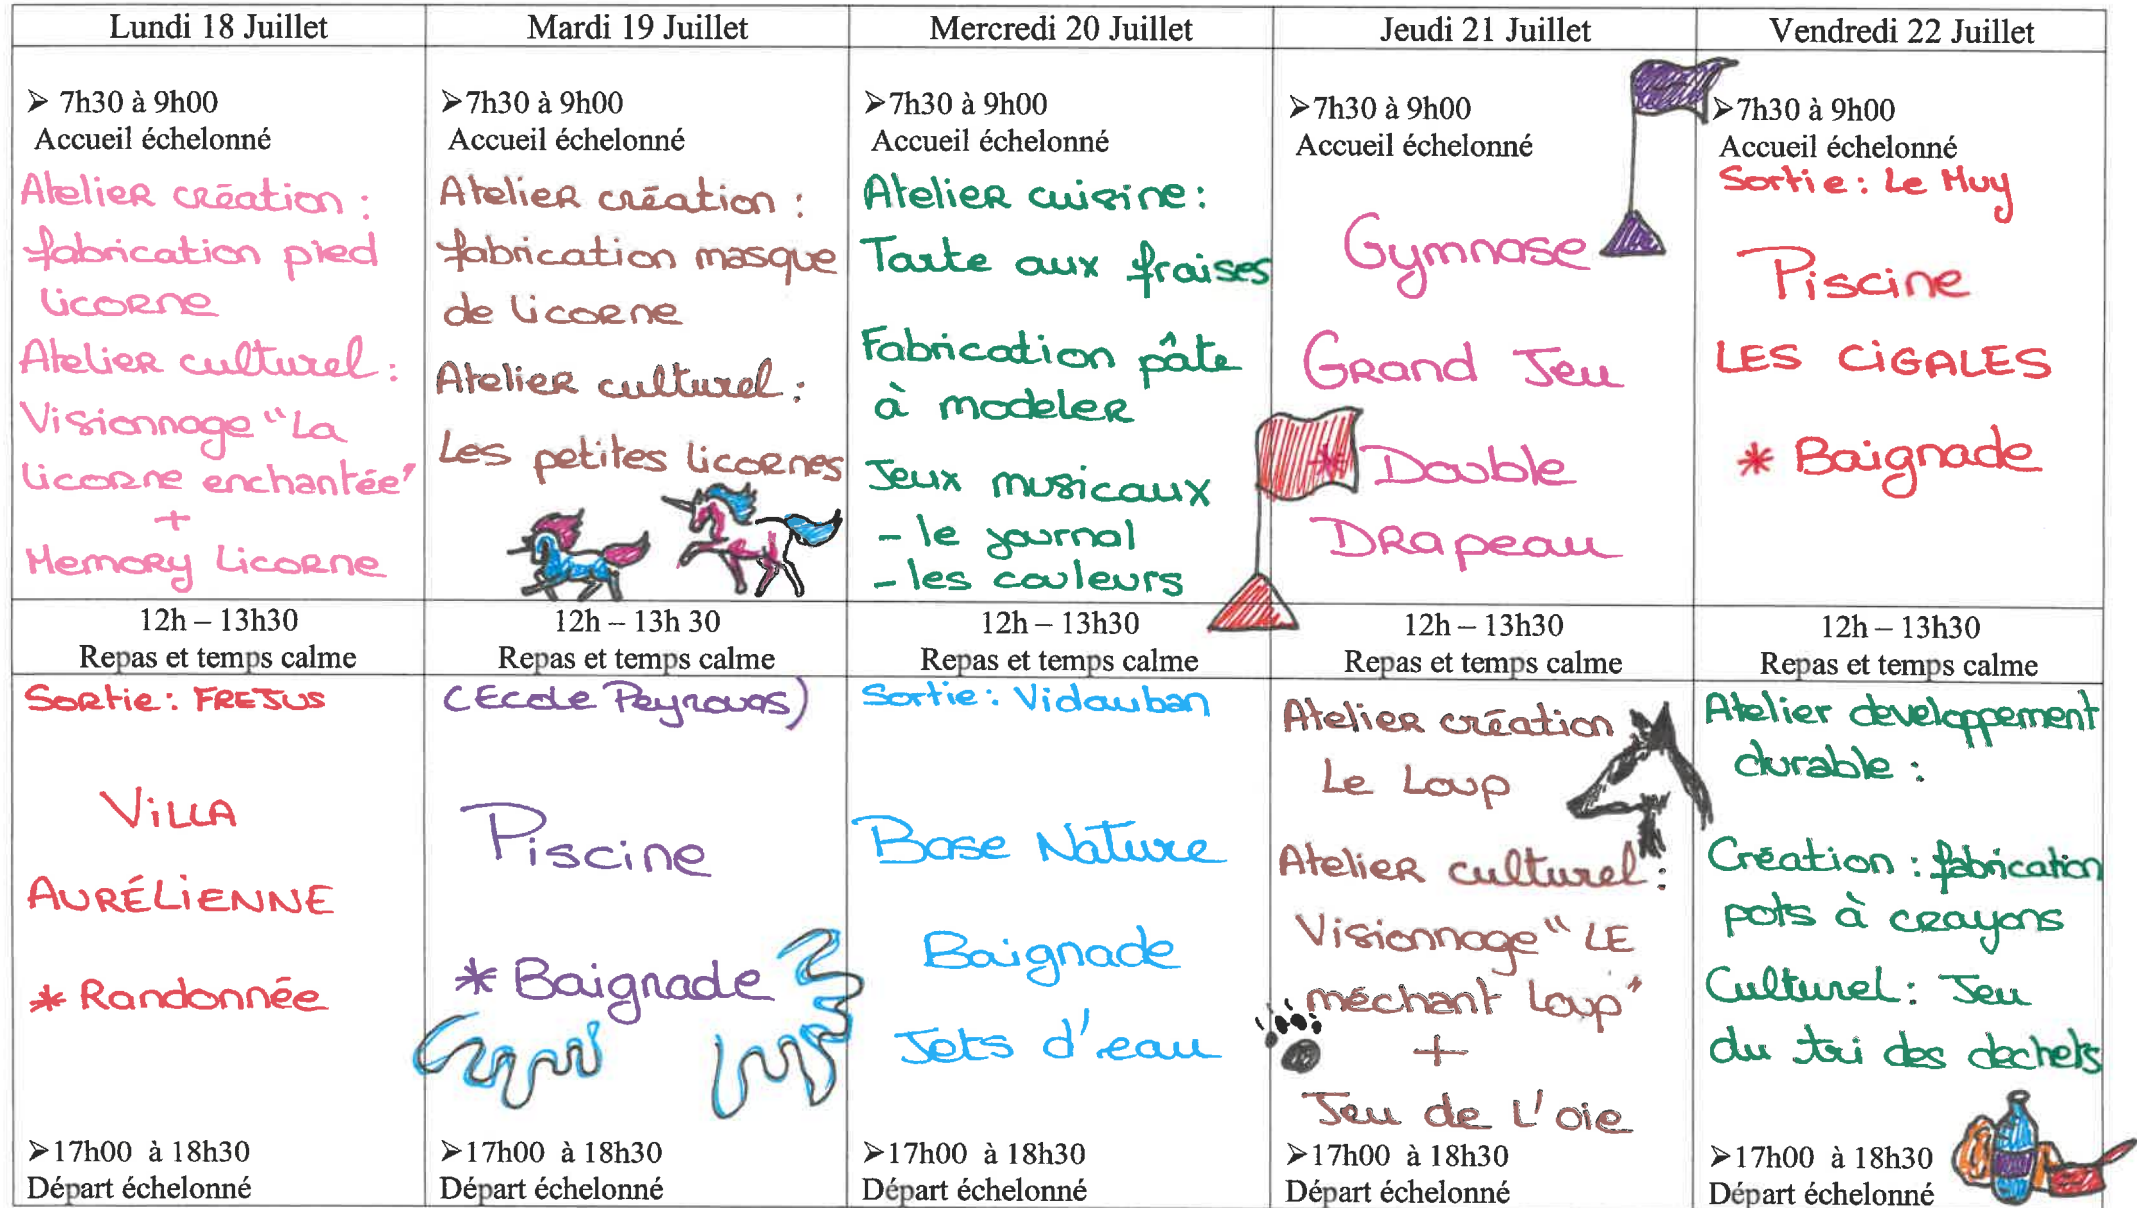 Lundi 18 Juillet
Mardi 19 Juillet
Mercredi 20 Juillet
Jeudi 21 Juillet
Vendredi 22 Juillet
➢ 7h30 à 9h00
Accueil échelonné
Atelier création :
fabrication pied
licorne
Atelier culturel :
Visionnage "La
licorne enchantée"
+
Memory Licorne
➢7h30 à 9h00
Accueil échelonné
Atelier création :
fabrication masque
de licorne
Atelier culturel :
Les petites licornes
➢7h30 à 9h00
Accueil échelonné
Atelier cuisine :
Tarte aux fraises
Fabrication pâte
à modeler
Jeux musicaux
- le journal
- les couleurs
➢7h30 à 9h00
Accueil échelonné
Gymnase
Grand Jeu
* Double
Drapeau
➢7h30 à 9h00
Accueil échelonné
Sortie : Le Muy
Piscine
LES CIGALES
* Baignade
12h – 13h30
Repas et temps calme
12h – 13h 30
Repas et temps calme
12h – 13h30
Repas et temps calme
12h – 13h30
Repas et temps calme
12h – 13h30
Repas et temps calme
Sortie : FREJUS
VILLA
AURÉLIENNE
* Randonnée
➢17h00 à 18h30
Départ échelonné
(Ecole Peyrouas)
Piscine
* Baignade
➢17h00 à 18h30
Départ échelonné
Sortie : Vidauban
Base Nature
Baignade
Jets d'eau
➢17h00 à 18h30
Départ échelonné
Atelier création
Le Loup
Atelier culturel :
Visionnage "LE
méchant Loup"
+
Jeu de L'oie
➢17h00 à 18h30
Départ échelonné
Atelier developpement
durable :
Création : fabrication
pots à crayons
Culturel : Jeu
du tri des dechets
➢17h00 à 18h30
Départ échelonné